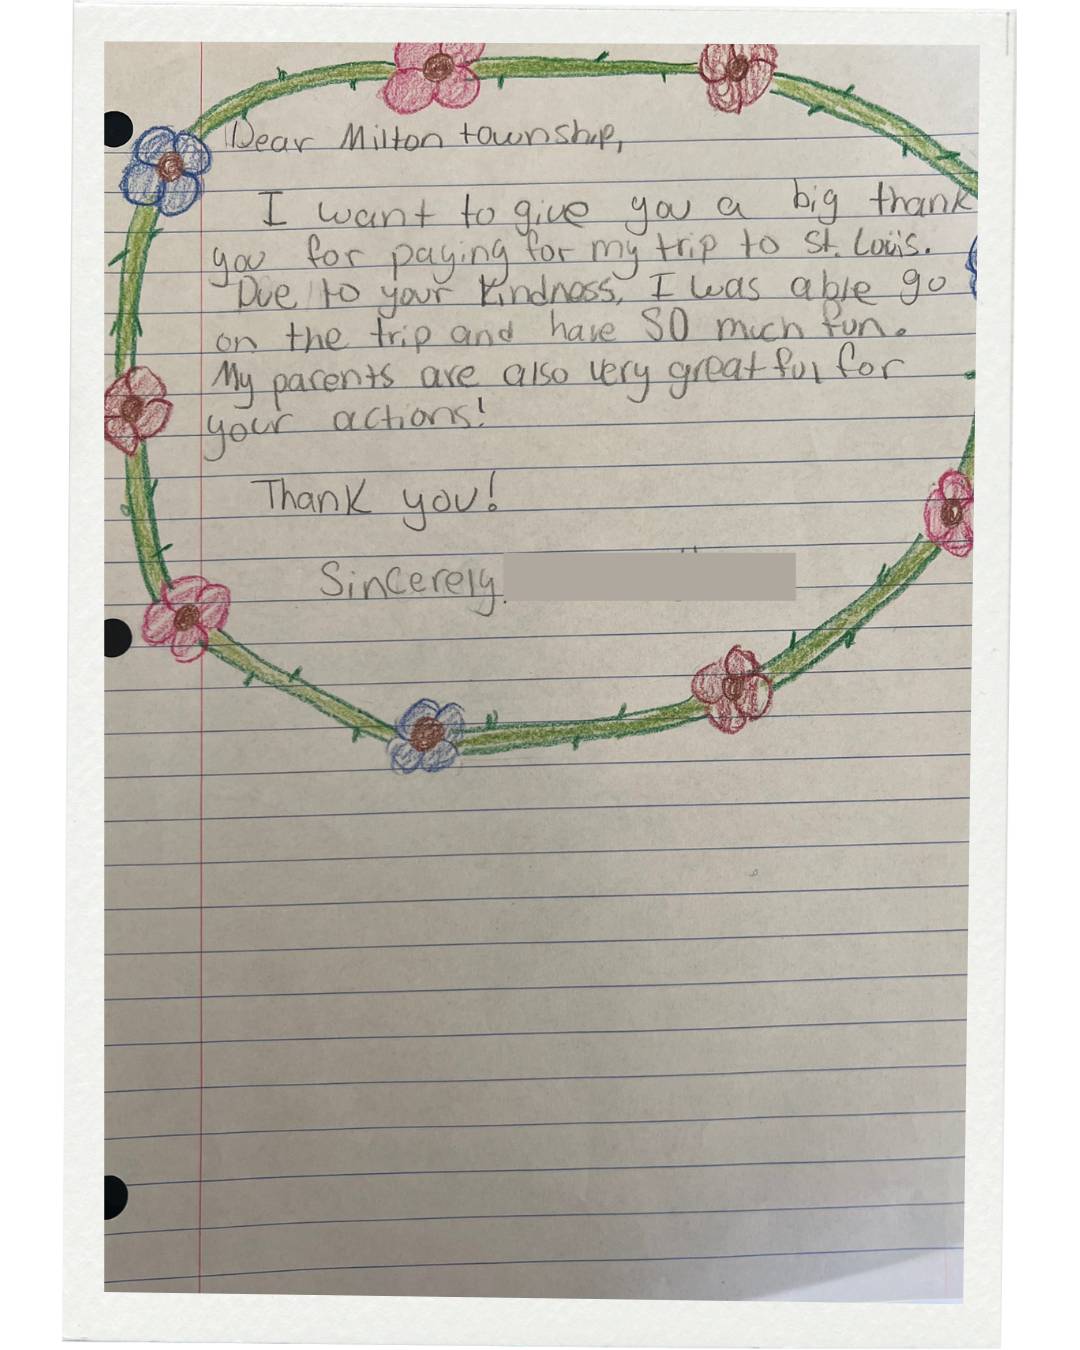 Dear Milton township,
I want to give you a big thank
you for paying for my trip to St. Louis.
Due to your kindness, I was able go
on the trip and have SO much fun.
My parents are also very greatful for
your actions!
Thank you!
Sincerely,